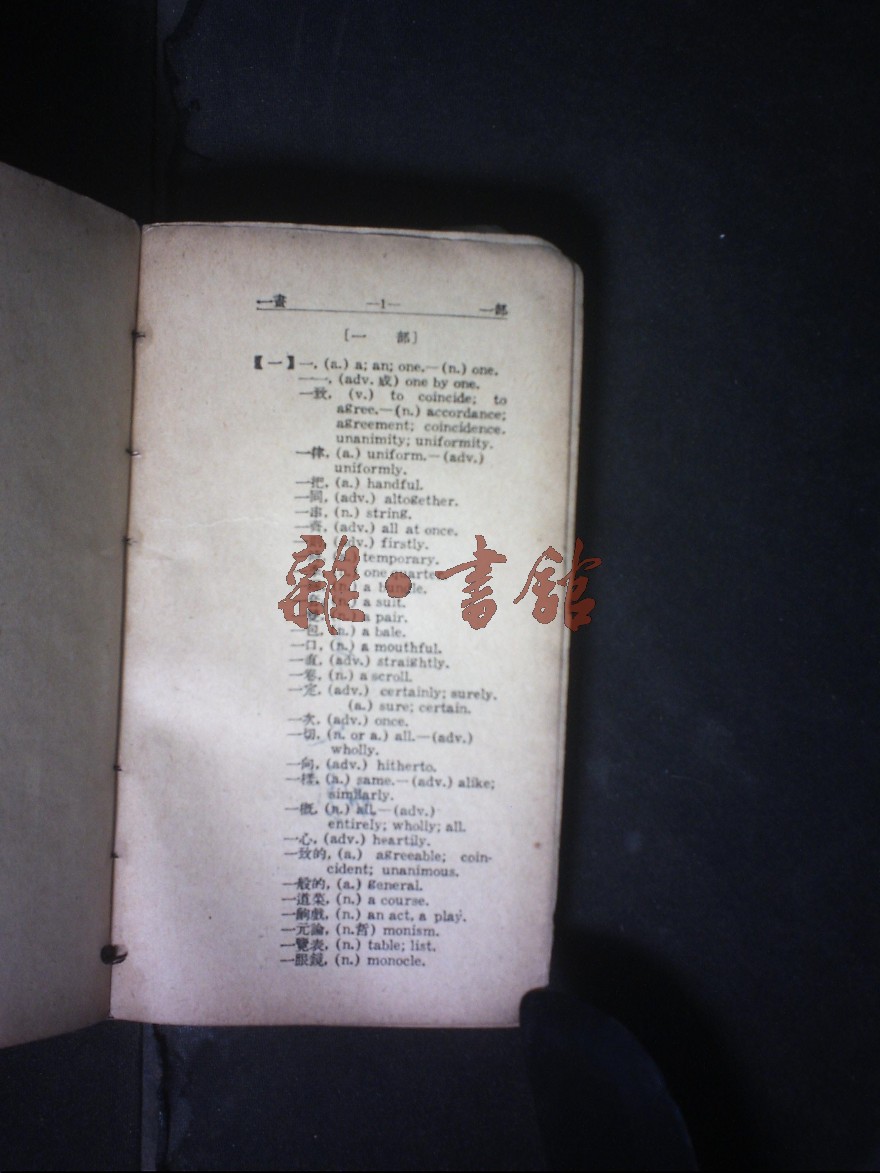 一畫 —1— 一部
[一 部]
【一】一, (a.) a; an; one.—(n.) one.
一一, (adv. 或) one by one.
一致, (v.) to coincide; to
agree.—(n.) accordance;
agreement; coincidence.
unanimity; uniformity.
一律, (a.) uniform.—(adv.)
uniformly.
一把, (a.) handful.
一同, (adv.) altogether.
一串, (n.) string.
一齊, (adv.) all at once.
firstly.
temporary.
one quarter.
(n.) a bundle.
(n.) a suit.
a pair.
一包, (n.) a bale.
一口, (n.) a mouthful.
一直, (adv.) straightly.
一卷, (n.) a scroll.
一定, (adv.) certainly; surely.
(a.) sure; certain.
一次, (adv.) once.
一切, (n. or a.) all.—(adv.)
wholly.
一向, (adv.) hitherto.
一樣, (a.) same.—(adv.) alike;
similarly.
一概, (n.) all.—(adv.)
entirely; wholly; all.
一心, (adv.) heartily.
一致的, (a.) agreeable; coin-
cident; unanimous.
一般的, (a.) general.
一道菜, (n.) a course.
一齣戲, (n.) an act, a play.
一元論, (n.哲) monism.
一覽表, (n.) table; list.
一眼鏡, (n.) monocle.
雜·書館